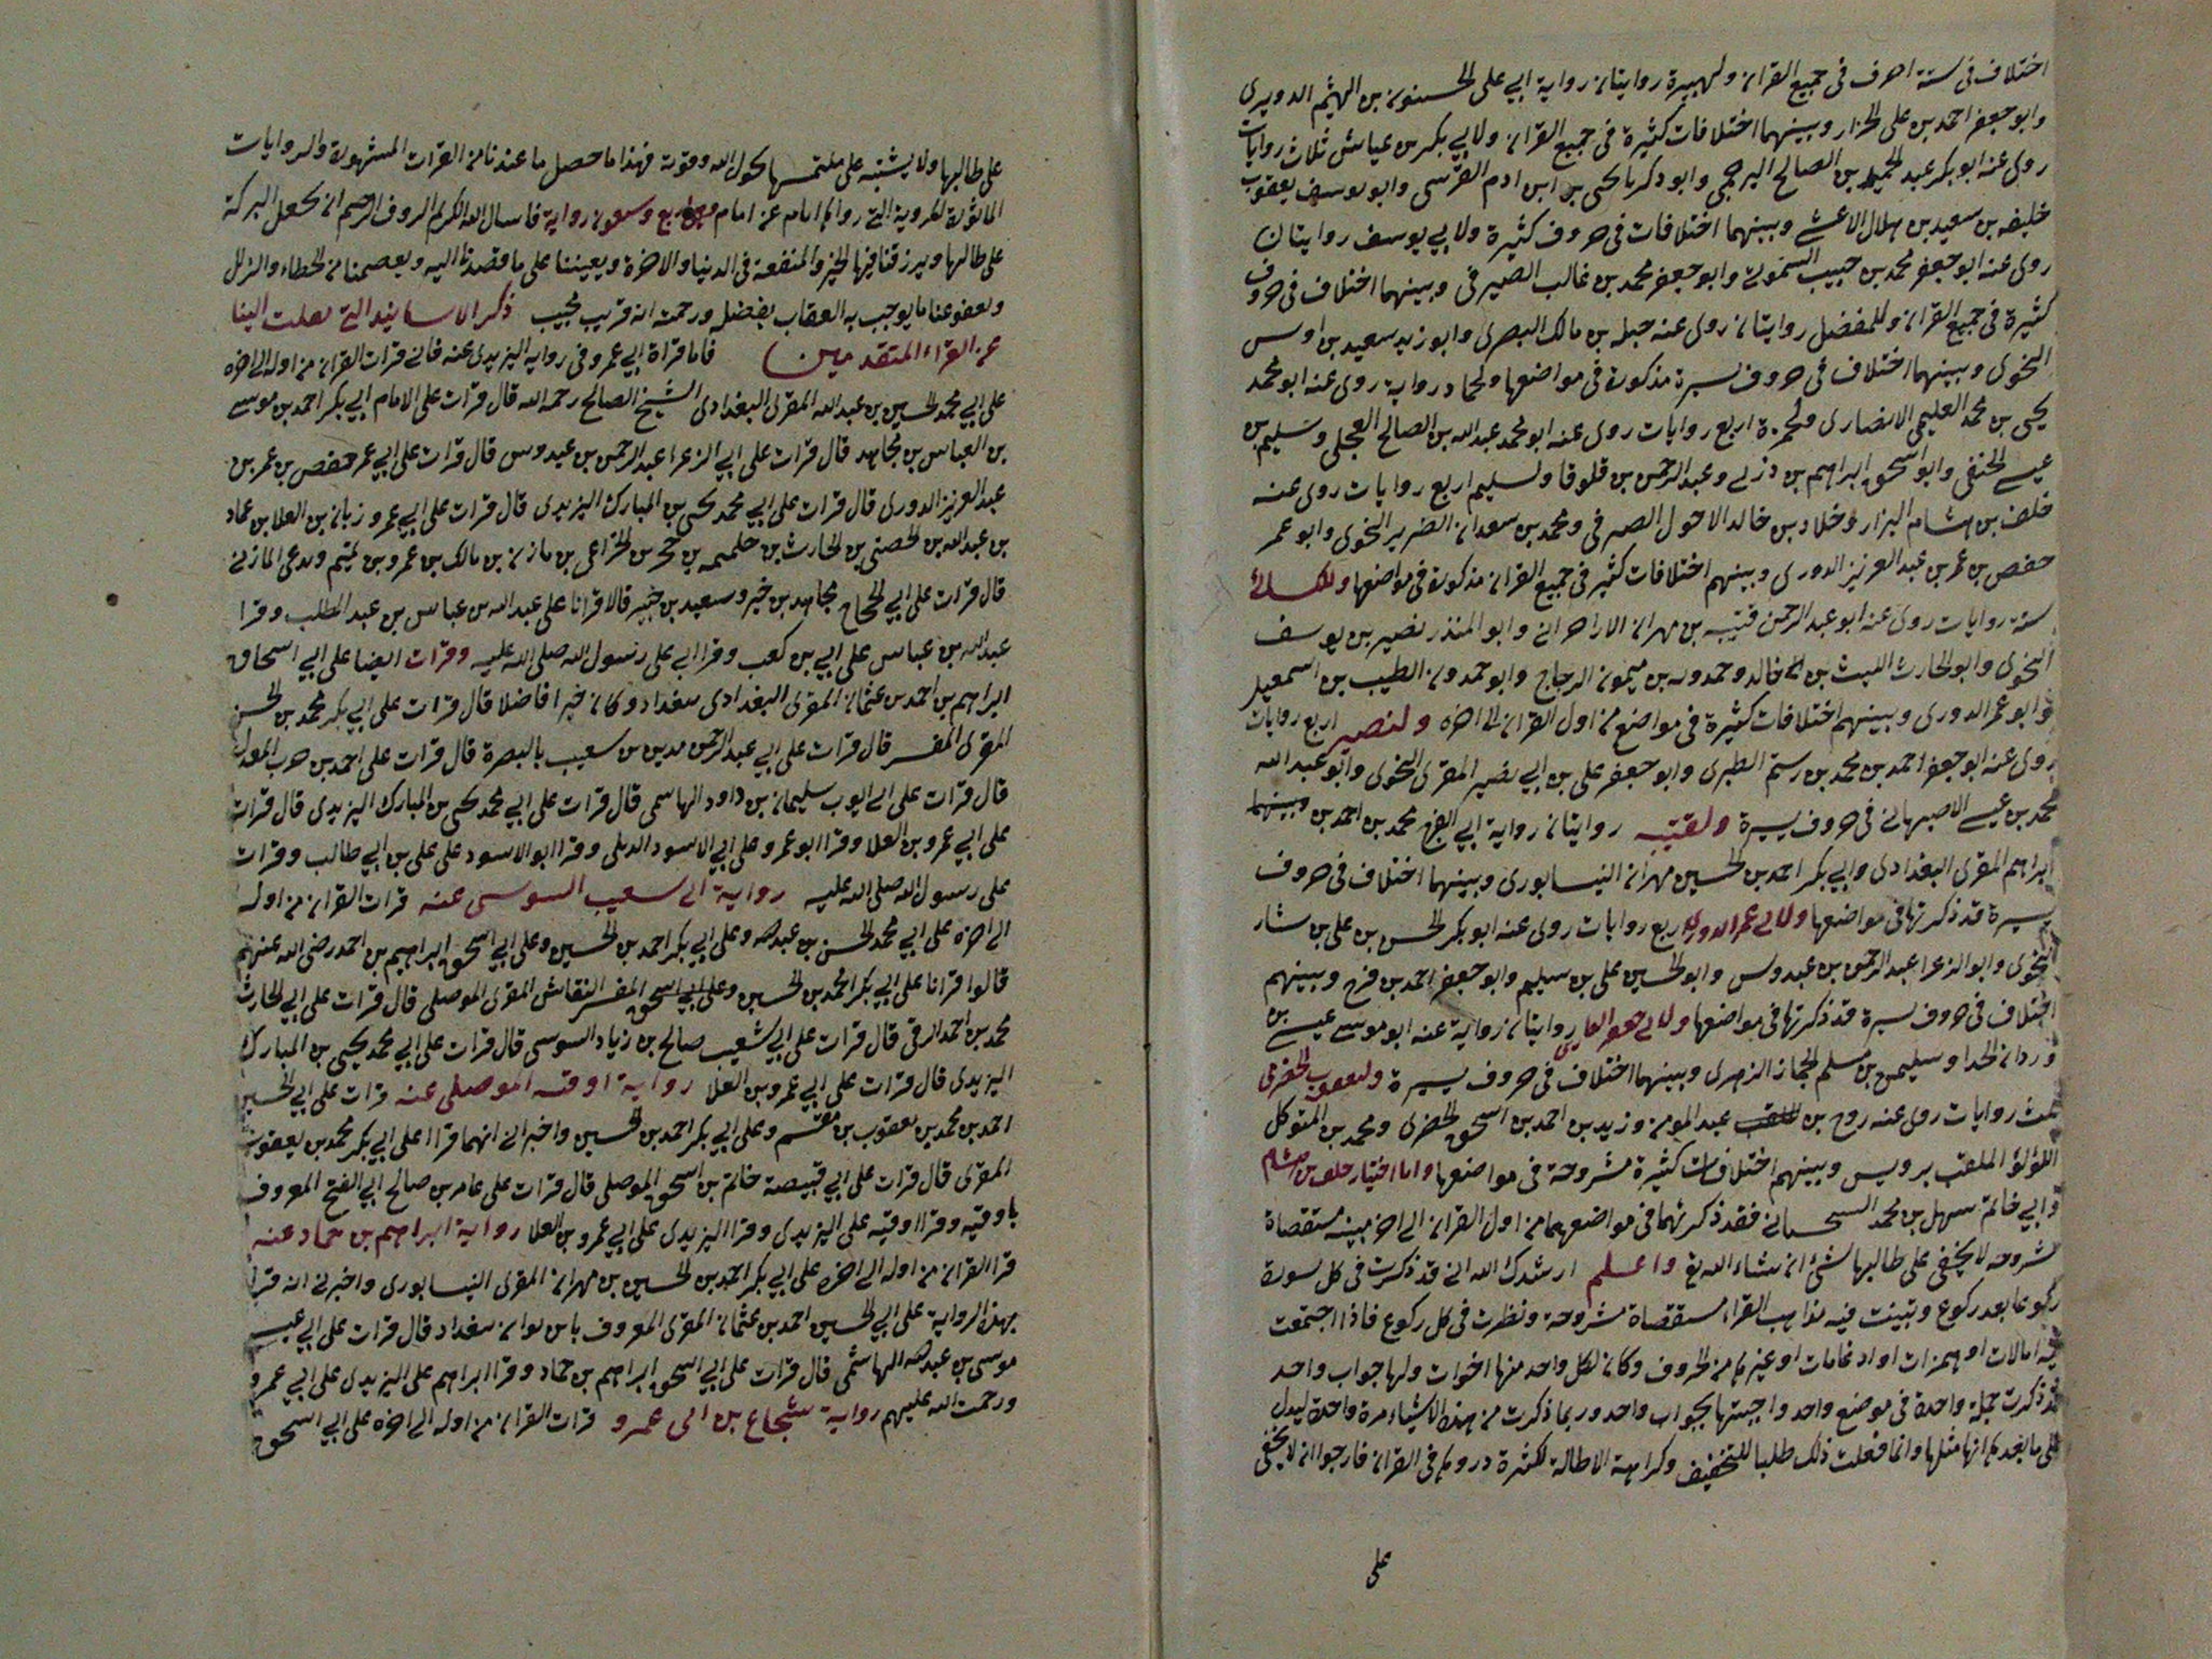 اختلاف فى ستة احرف فى جميع القران ولهبيرة روايتان رواية ابي على الحسنون بن الهيثم الدويرى
وابو جعفر احمد بن على الخزار وبينهما اختلافات كثيرة فى جميع القران ولابي بكر بن عياش ثلاث روايات
روى عنه ابو بكر عبد الحميد بن الصالح البرجمي وابو ذكريا يحيى بن ابن ادم القرشى وابو يوسف يعقوب
خليفه بن سعيد بن هلال الاعشى وبينهما اختلافات فى حروف كثيرة ولابي يوسف روايتان
روى عنه ابو جعفر محمد بن حبيب الشمونى وابو جعفر محمد بن غالب الصيرفى وبينهما اختلاف فى حروف
كثيرة فى جميع القران وللمفضل روايتان روى عنه جبله بن مالك البصرى وابو زيد سعيد بن اوس
النحوى وبينهما اختلاف فى حروف يسيرة مذكورة فى مواضعها ولحماد رواية روى عنه ابو محمد
يحيى بن محمد العليمى الانصارى ولحمزة اربع روايات روى عنه ابو محمد عبد الله بن الصالح العجلى وسليم بن
عيسى الحنفى وابو اسحق ابراهيم بن ذربى وعبد الرحمن بن قلوقا ولسليم اربع روايات روى عنه
خلف بن هشام البزار وخلاد بن خالد الاحول الصيرفى ومحمد بن سعدان الضرير النحوى وابو عمر
حفص بن عمر بن عبد العزيز الدورى وبينهم اختلافات كثير فى جميع القران مذكورة فى مواضعها وللكسائى
ستة روايات روى عنه ابو عبد الرحمن قتيبه بن مهران الازاهرانى وابو المنذر نصير بن يوسف
النحوى وابو الحارث الليث بن خالد وحمدويه بن ميمون الزجاج وابو حمدون الطيب بن اسمعيل
وابو عمر الدورى وبينهم اختلافات كثيرة فى مواضع من اول القران الى اخره ولنصير اربع روايات
روى عنه ابو جعفر احمد بن محمد بن رستم الطبرى وابو جعفر على بن ابي نصير المقرى النحوى وابو عبد الله
محمد بن عيسى الاصبهانى فى حروف يسيرة ولقتيبه روايتان رواية ابي الفرج محمد بن احمد بن بينهما
ابراهيم المقرى البغدادى وابي بكر احمد بن الحسين مهران النيسابورى وبينهما اختلاف فى حروف
يسيرة قد ذكرتها فى مواضعها ولابى عمر الدورى اربع روايات روى عنه ابو بكر الحسن بن على بن بشار
النحوى وابو الزعرا عبد الرحمن بن عبدوس وابو الحسين على بن سليم وابو جعفر احمد بن فرح وبينهم
اختلاف فى حروف يسيرة قد ذكرتها فى مواضعها ولابى جعفر القارى روايتان رواية عنه ابو موسى عيسى بن
وردان الحذا وسليمن بن مسلم الجماز الزهرى وبينهما اختلاف فى حروف يسيرة وليعقوب الحضرمى
ثلث روايات روى عنه روح بن عبد المومن وزيد بن احمد بن اسحق الحضرمى ومحمد بن المتوكل
اللؤلؤ الملقب برويس وبينهم اختلافات كثيرة مشروحة فى مواضعها واما اختيار خلف بن هشام
وابي حاتم سهل بن محمد السجستانى فقد ذكرتهما فى مواضعهما من اول القران الى اخر مبينه مستقصاة
مشروحه لا يخفى على طالبها شئ ان شاء الله تع واعلم ارشدك الله انى قد ذكرت فى كل سورة
ركوعا بعد ركوع وبينت فيه مذاهب القراء مستقصاة مشروحة ونظرت فى كل ركوع فاذا اجتمعت
فيه امالات او همزات او ادغامات او غيرها من الحروف وكان لكل واحد منها اخوات ولها جواب واحد
قد ذكرت جملة واحدة فى موضع واحد واجبتها بجواب واحد وربما ذكرت من هذه الاشياء مرة واحدة ليدل
على ما بعدها انها مثلها وانما فعلت ذلك طلبا للتخفيف وكراهية الاطالة لكثرة دروها فى القران فارجوا ان لا يخفى
على
على طالبها ولا يشتبه على ملتمسها بحول الله وقوته فهذا ما حصل ما عندنا من القرات المشهورة والروايات
الماثورة المروية التى رواها امام عن امام وهى اربع وسعون رواية فاسال الله الكريم الروف الرحيم ان يجعل البركة
على طالبها ويرزقنا فيها الخير والمنفعة فى الدنيا والاخرة ويعيننا على ما قصدنا اليه ويعصمنا من الخطاء والزلل
ويعفو عنا ما يوجب به العقاب بفضله ورحمته انه قريب مجيب ذكر الاسانيد التى نقلت الينا
عن القراء المتقدمين فاما قراة ابي عمرو فى رواية اليزيدى عنه فانى قرات القران من اوله الى اخره
على ابي محمد الحسين بن عبد الله المقرى البغدادى الشيخ الصالح رحمه الله قال قرات على الامام ابي بكر احمد بن موسى
بن العباس بن مجاهد قال قرات على ابي الزعرا عبد الرحمن بن عبدوس قال قرات على ابي عمر حفص بن عمر بن
عبد العزيز الدورى قال قرات على ابي محمد يحيى بن المبارك اليزيدى قال قرات على ابي عمرو زبان بن العلا بن عماد
بن عبد الله بن الحصنى بن الحارث بن جلهمه بن حجر بن الخزاعى بن مازن بن مالك بن عمرو بن تميم ويدعى المازنى
قال قرات على ابي الحجاج مجاهد بن خبر وسعيد بن جبير قالا قرانا على عبد الله بن عباس بن عبد المطلب وقرا
عبد الله بن عباس على ابي بن كعب وقرا ابي على رسول الله صلى الله عليه وقرات ايضا على ابي اسحاق
ابراهيم بن احمد بن عثمان المقرى البغدادى ببغداد وكان خيرا فاضلا قال قرات على ابي بكر محمد بن الحسن
المقرى المفسر قال قرات على ابي عبد الرحمن مدين بن سعيب بالبصرة قال قرات على احمد بن حرب المعدل
قال قرات على ابى ايوب سليمان بن داود الهاسمى قال قرات على ابي محمد يحيى بن المبارك اليزيدى قال قرات
على ابي عمرو بن العلا وقرا ابو عمرو على ابي الاسود الدىلى وقرا ابو الاسود على على بن ابي طالب وقرات
على رسول الله صلى الله عليه رواية ابى سعيب السوسى عنه قرات القران من اوله
الى اخره على ابي محمد الحسن بن عبد الله وعلى ابي بكر احمد بن الحسين وعلى ابي اسحق ابراهيم بن احمد رضى الله عنهم
قالوا قرانا على ابي بكر احمد بن الحسين وعلى ابي اسحق المفسر النقاش المقرى الموصلى قال قرات على ابي الحارث
محمد بن احمد الرقى قال قرات على ابي شعيب صالح بن زياد السوسى قال قرات على ابي محمد يحيى بن المبارك
اليزيدى قال قرات على ابي عمرو بن العلا رواية اوقيه الموصلى عنه قرات على ابي الحسين
احمد بن محمد بن يعقوب بن مقسم وعلى ابي بكر احمد بن الحسين واخبرانى انهما قراا على ابي بكر محمد بن يعقوب
المقرى قال قرات على ابي قبيصة حاتم بن اسحق الموصلى قال قرات على عامر بن صالح ابي الفتح المعروف
باوقيه وقرا اوقيه على اليزيدى وقرا اليزيدى على ابي عمرو بن العلا رواية ابراهيم بن حماد عنه
قرا القران من اوله الى اخره على ابي بكر احمد بن الحسين بن مهران المقرى النيسابورى واخبرنى انه قرا
بهذه الرواية على ابي الحسين احمد بن عثمان المقرى المعروف باس بوان ببغداد قال قرات على ابي عيسى
موسى بن عبد الله الهاشمى قال قرات على ابي اسحق ابراهيم بن حماد وقرا ابراهيم على اليزيدى على ابي عمرو
ورحمت الله عليهم رواية شجاع بن ابى عمرو قرات القران من اوله الى اخره على ابي اسحق